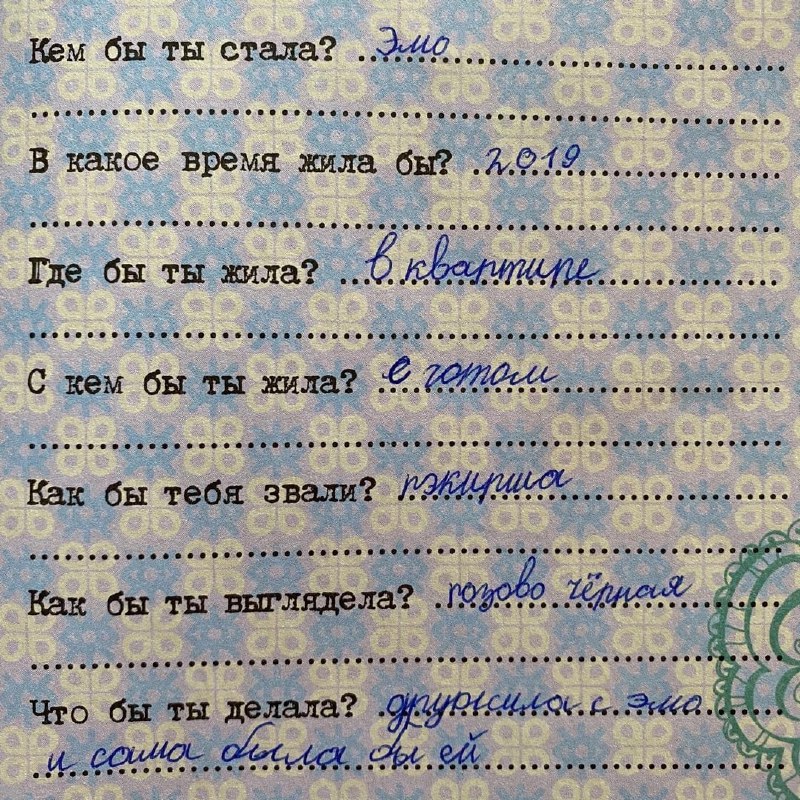 Кем бы ты стала? Эмо
В какое время жила бы? 2019
Где бы ты жила? в квартире
С кем бы ты жила? с готом
Как бы тебя звали?
Как бы ты выглядела? розово чёрная
Что бы ты делала? дружила с эмо
и сама была бы ей